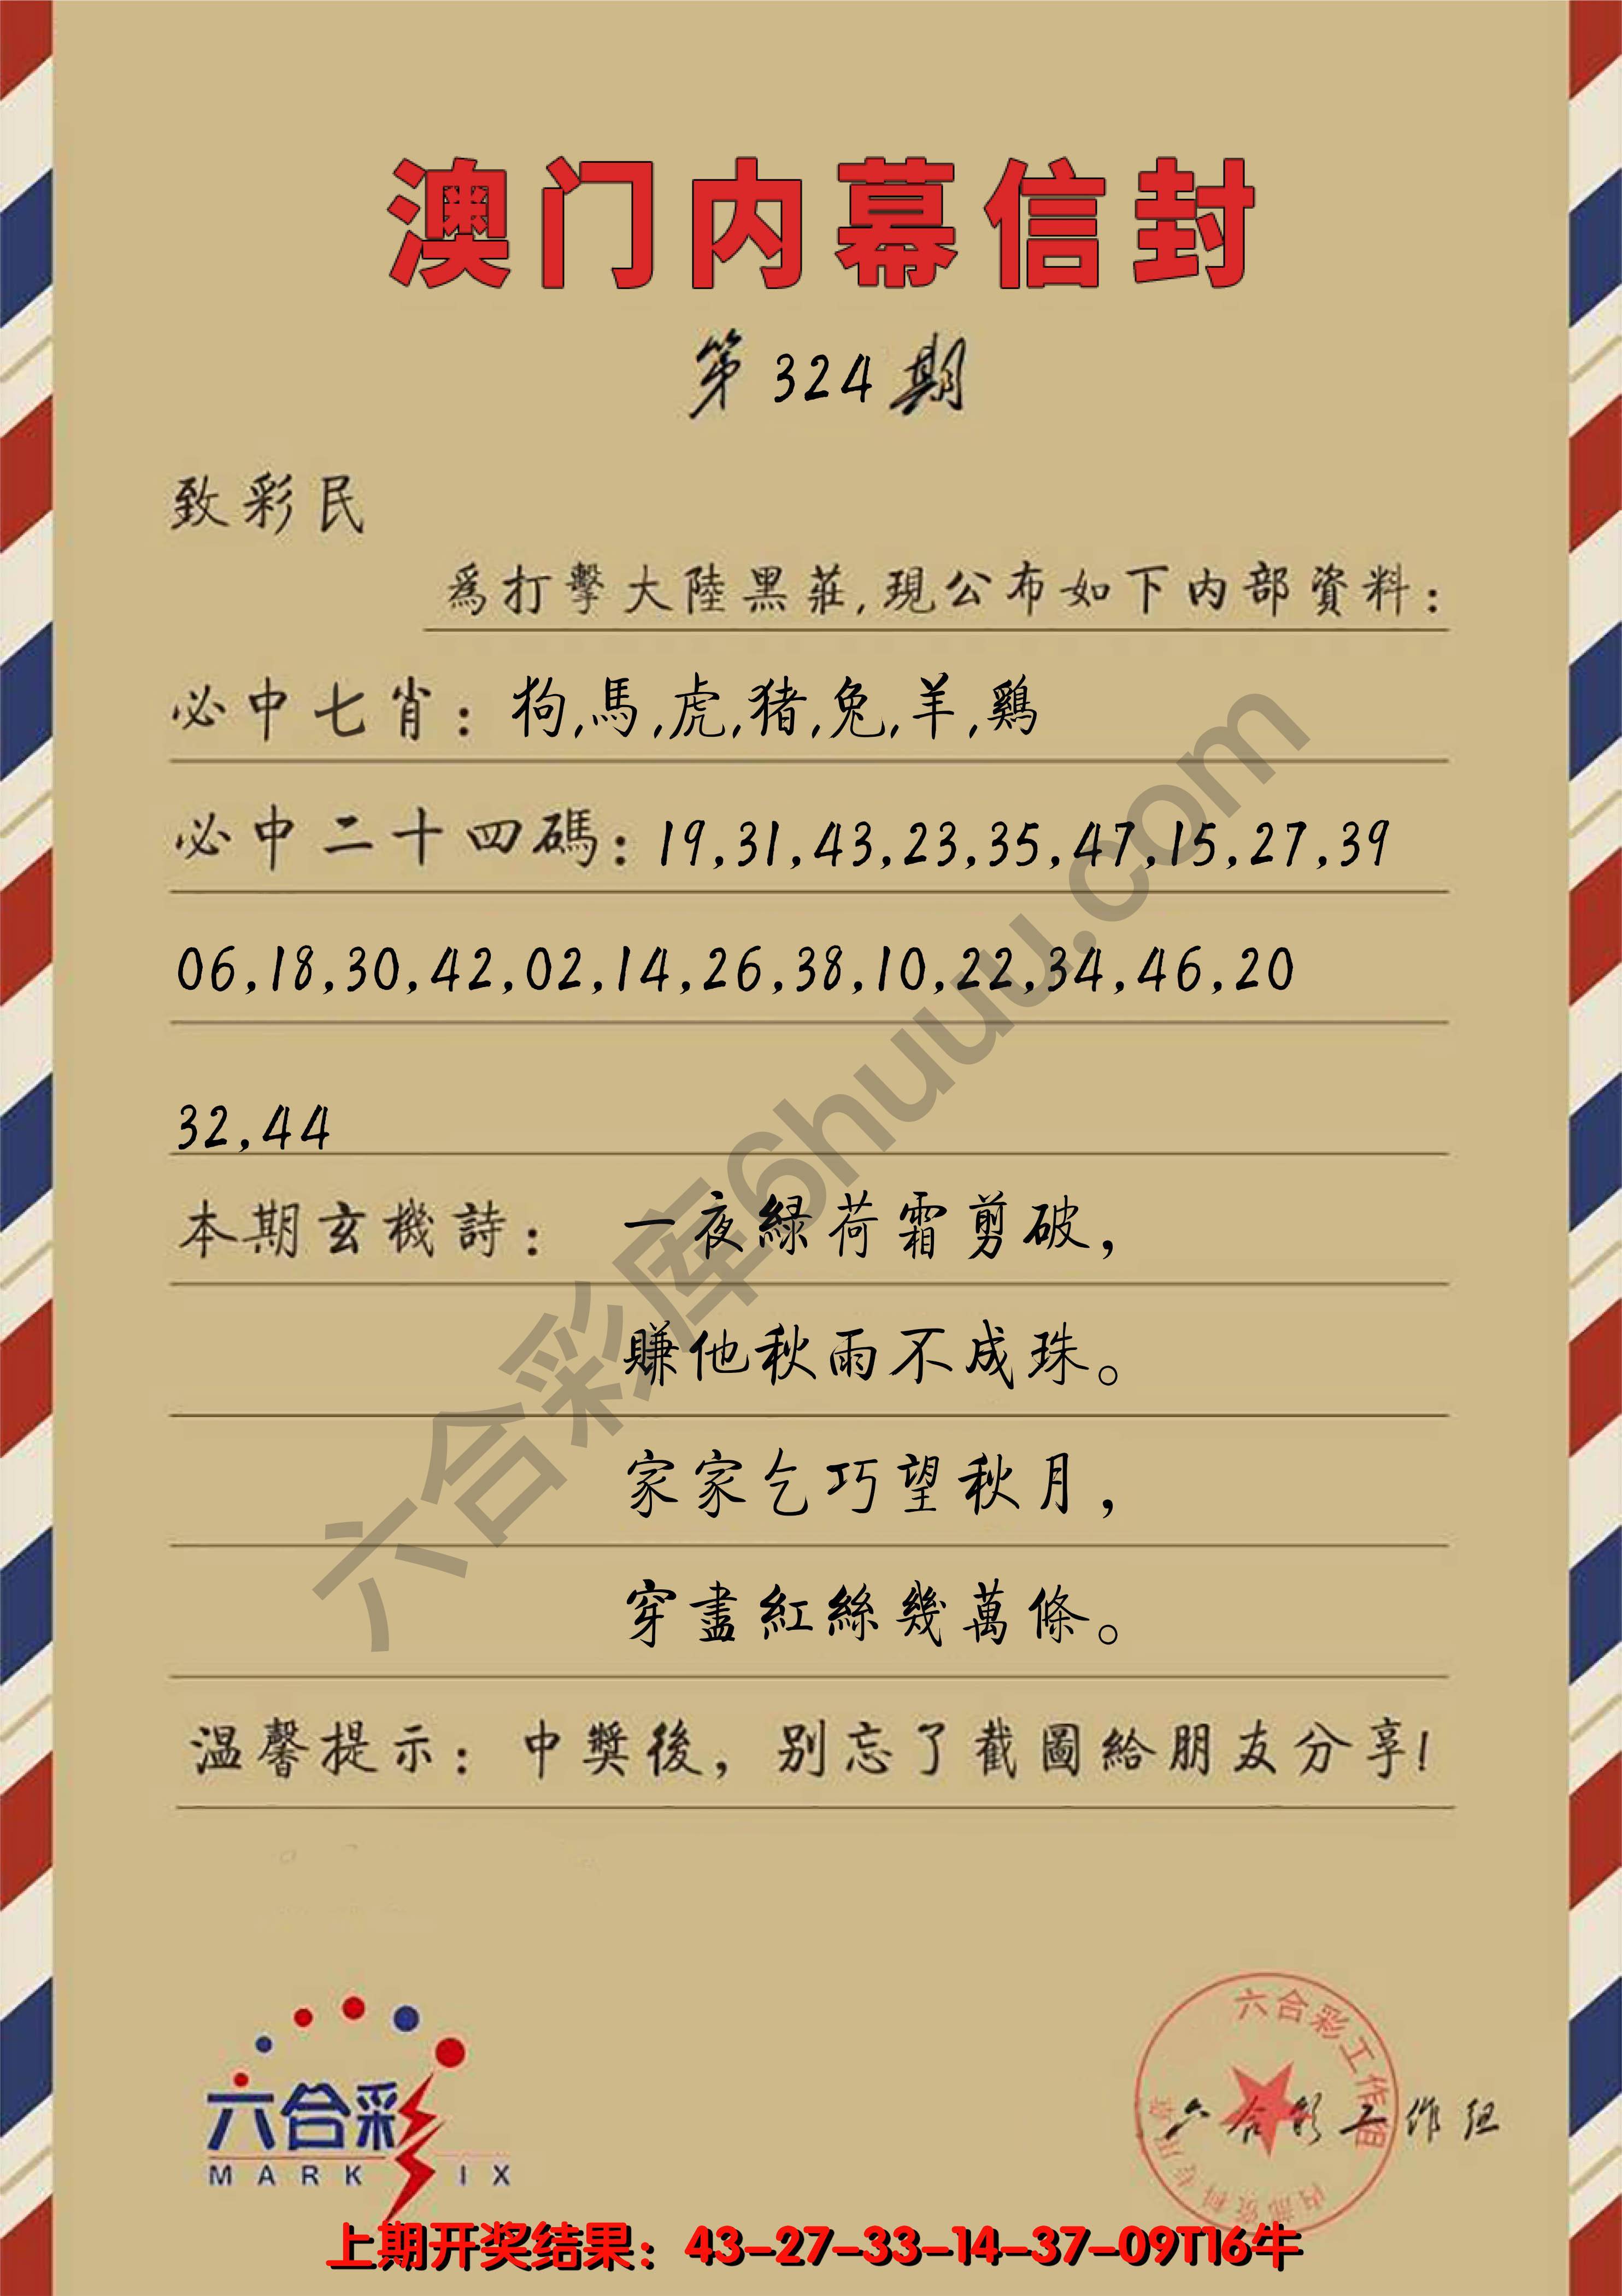 澳门内幕信封
第324期
致彩民
爲打擊大陸黑莊,現公布如下内部資料:
必中七肖: 狗,馬,虎,猪,兔,羊,鷄
必中二十四碼: 19,31,43,23,35,47,15,27,39
06,18,30,42,02,14,26,38,10,22,34,46,20
32,44
本期玄機詩: 一夜緑荷霜剪破,
賺他秋雨不成珠。
家家乞巧望秋月,
穿盡紅絲幾萬條。
温馨提示: 中獎後, 别忘了截圖給朋友分享!
六合彩库6huuu.com
六合彩
MARK IX
六合彩工作组
六合彩工作组
上期开奖结果: 43-27-33-14-37-09T16牛